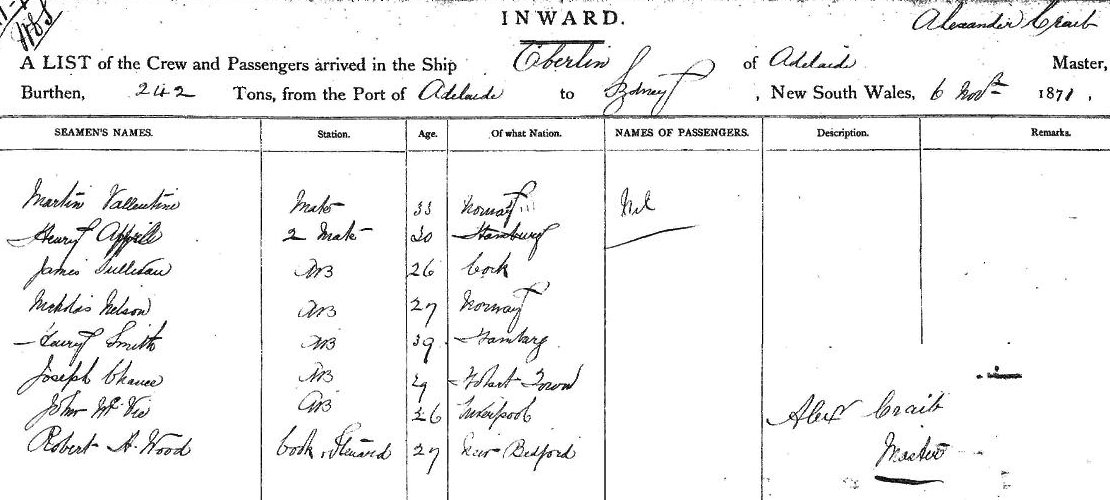 INWARD.
Alexander Craib
A LIST of the Crew and Passengers arrived in the Ship Oberlin of Adelaide Master,
Burthen, 242 Tons, from the Port of Adelaide to Sydney, New South Wales, 6 Novr 1871,
SEAMEN'S NAMES. Station. Age. Of what Nation. NAMES OF PASSENGERS. Description. Remarks.
Martin Vallentine Mate 33 Norway Nil
Henry 2 Mate 30 Hamburg
James Sullivan AB 26 Cork
Nicholas Nelson AB 27 Norway
Smith AB 39 Hamburg
Joseph Chance AB 29 Hobart Town
John McVie AB 26 Liverpool Alex Craib
Robert A. Wood Cook, Steward 27 New Bedford Master